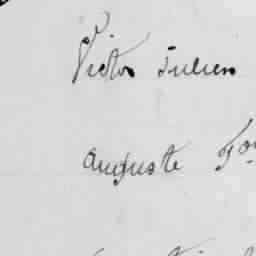 Victor Julien
Auguste